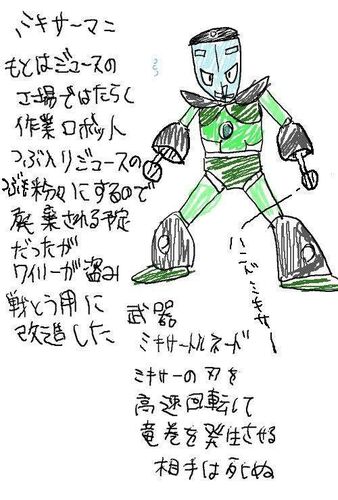 ミキサーマン
もとはジュースの
工場ではたらく
作業ロボット
つぶ入りジュースの
つぶを粉々にするので
廃棄される予定
だったが
ワイリーが盗み
戦とう用に
改造した
ハンドミキサー
武器
ミキサートルネード
ミキサーの刃を
高速回転して
竜巻を発生させる
相手は死ぬ